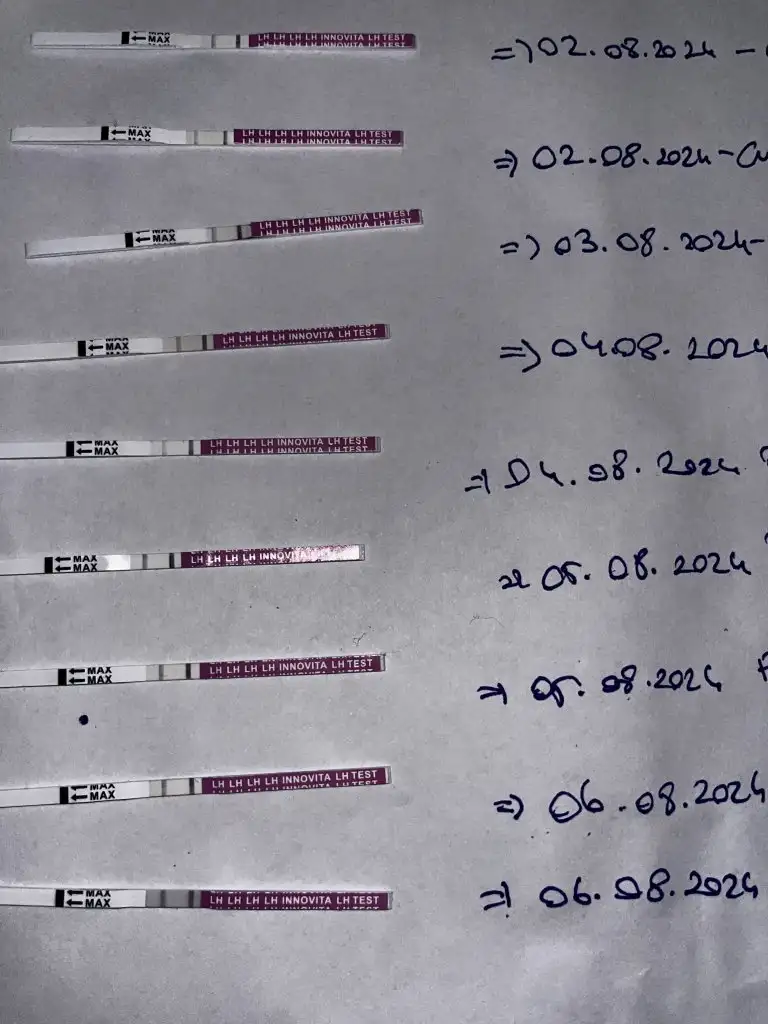 ← MAX LH LH LH LH INNOVITA LH TEST
LH LH LH LH INNOVITA LH TEST
=> 02.08.2024 -
← MAX LH LH LH LH INNOVITA LH TEST
LH LH LH LH INNOVITA LH TEST
=> 02.08.2024 -
← MAX LH LH LH LH INNOVITA LH TEST
LH LH LH LH INNOVITA LH TEST
=> 03.08.2024 -
← MAX LH LH LH LH INNOVITA LH TEST
=> 04.08.2024
← MAX LH LH LH LH INNOVITA LH TEST
← MAX LH LH LH LH INNOVITA LH TEST
=> 04.08.2024
← MAX
← MAX LH LH LH LH INNOVITA
=> 05.08.2024
← MAX LH LH LH LH INNOVITA LH TEST
← MAX
=> 05.08.2024
← MAX LH LH LH LH INNOVITA LH TEST
← MAX
=> 06.08.2024
← MAX LH LH LH LH INNOVITA LH TEST
← MAX
=> 06.08.2024